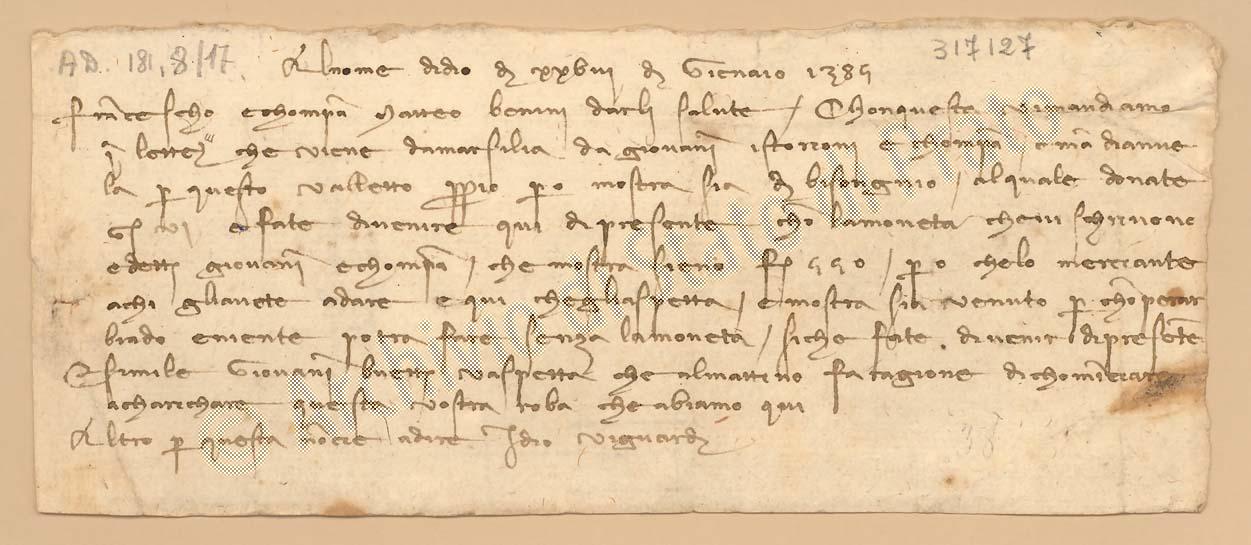 AD. 181, 8/17 317127
Al nome di dio dì xxviii di Giennaio 1385
Franciescho e chomp. Matteo benini d'Arli salute / Chonquesta vi mandiamo
lettere che viene da marsilia da giovanni e chomp.
la per questo valletto proprio però mostra sia di bisongnio / al quale donate
g. vi e fate di venire qui di presente chon la moneta che vi schrivono
e detti giovanni e chomp. / che mostra sieno f. 550 / però che lo merchante
a chi gli avete a dare è qui che gli aspetta / e mostra sia venuto per chonperar
biado e niente potrà fare senza la moneta / sì che fate di venir di presente
E simile Giovanni v'aspetta che al mattino fa ragione di chominciare
a charichare questa vostra roba che abiamo qui
Altro per questa non ci è a dire Idio vi guardi
38
© Archivio di Stato di Prato